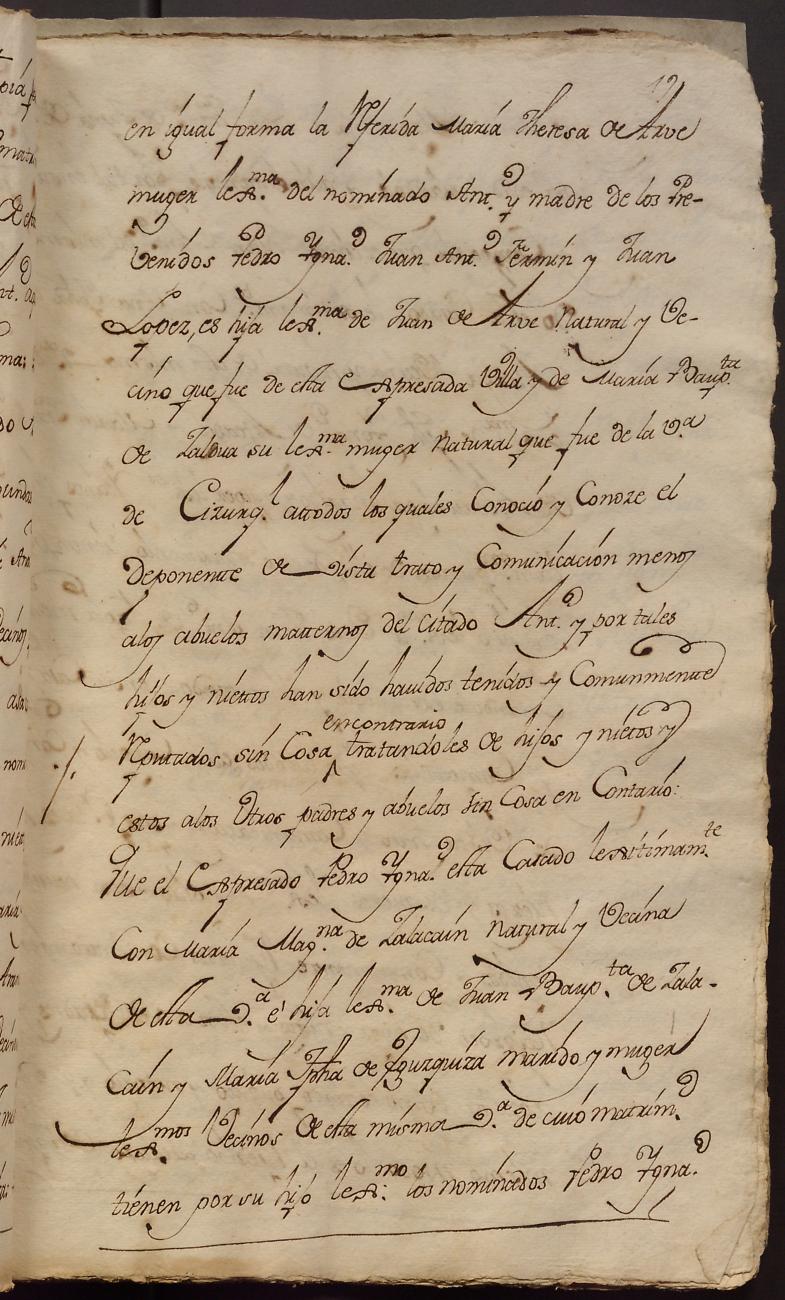 12
en igual forma la Rferida María Theresa de Arve
muger lex.ma del nominado Ant.º y madre de los Pre-
venidos Pedro Ygna.º Juan Ant.º Fermín y Juan
Lopez, es hija lex.ma de Juan de Arve Natural y Ve-
cino que fue de esta expresada Villa y de María Baup.ta
de Zaldua su lex.ma muger natural que fue de la V.a
de Cirurq.l attodos los quales Conoció y Conoze el
Deponente de vista trato y Comunicación menos
alos abuelos matternos del citado Ant.º y por tales
hijos y niettos han sido havidos tenidos y Comunmente
Rputados sin Cosa tratandoles de hijos y niettos y
encontrario
estos alos otros padres y abuelos sin Cosa en Contario:
Que el expresado Pedro Ygna.º esta Casado lexitimam.te
Con María Mag.na de Zalacaín natural y Vecina
de esta V.a é hija lex.ma de Juan Baup.ta de Zala-
Caín y María Jpha de Yzurquiza marido y muger
lex.mos Vecinos de esta misma V.a de cuio matrim.º
tienen por su hijo lex.mo los nominados Pedro Ygna.º